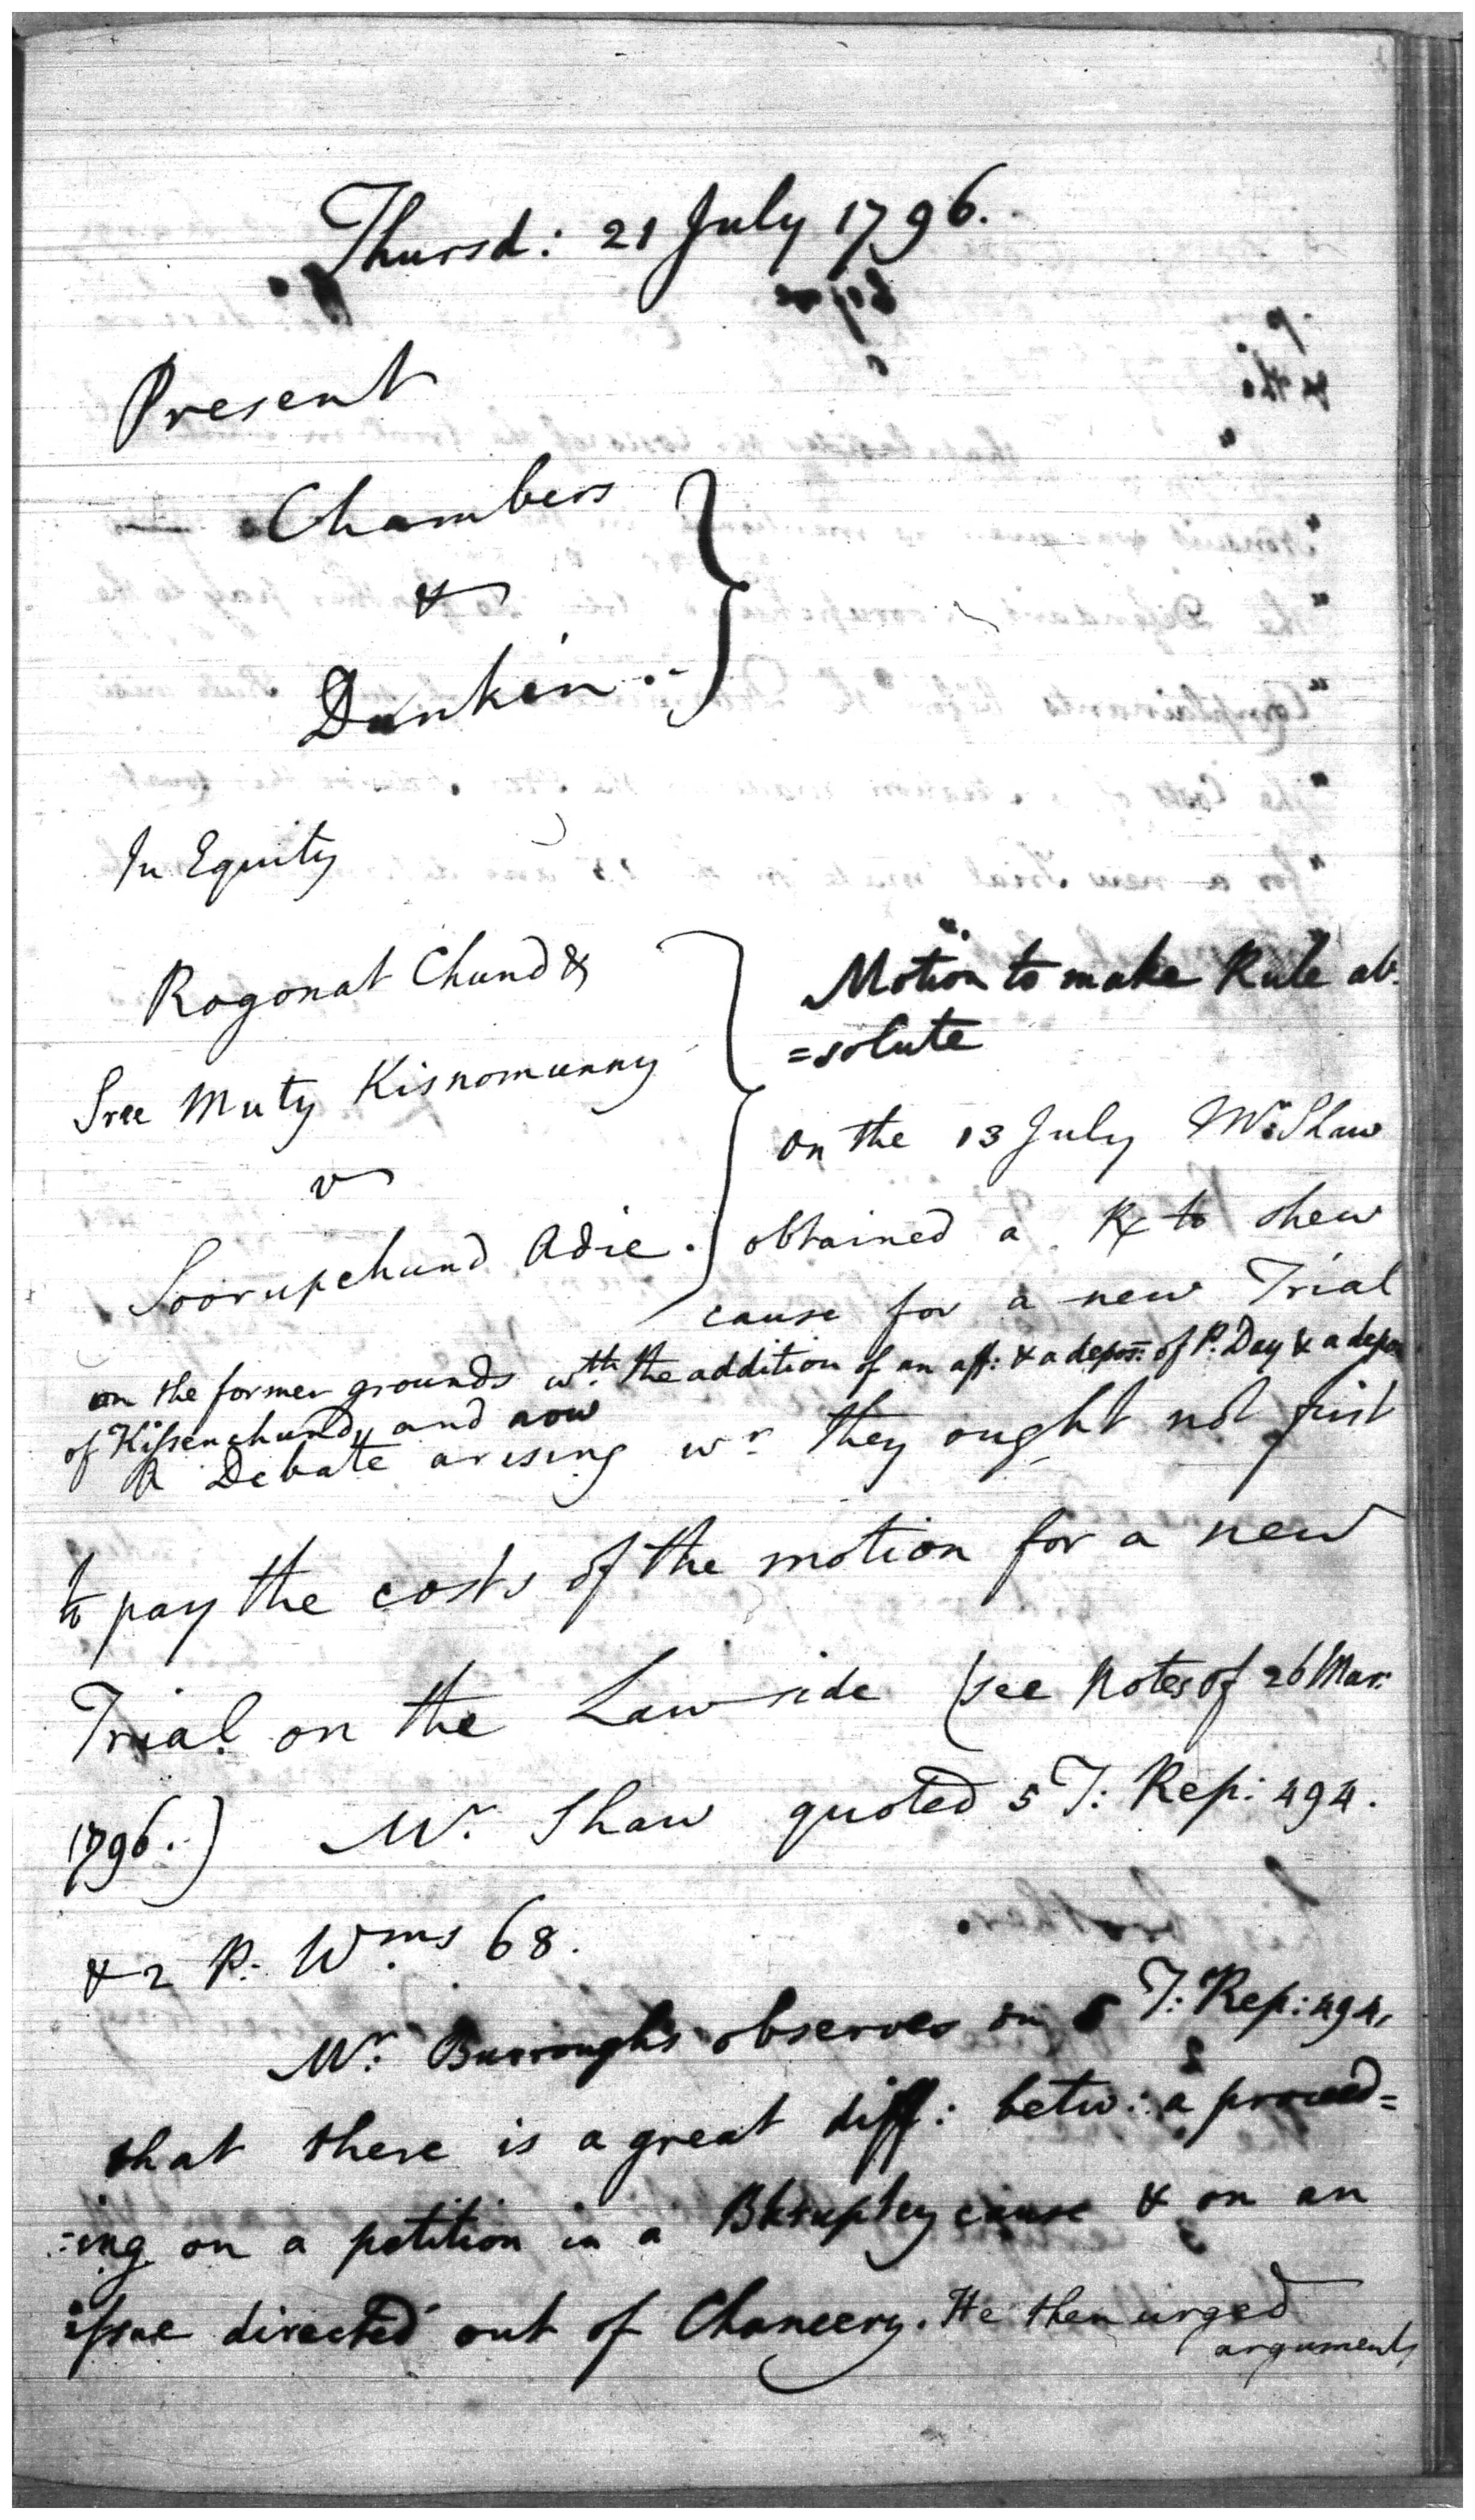 Thursd: 21 July 1796.
Present
Chambers
&
Dunkin.
In Equity
Rogonat Chund &
Sree Muty Kisnomunny
v
Soorupchund Adie.
Motion to make Rule ab
=solute
on the 13 July Mr. Shaw
obtained a R to shew
cause for a new Trial
on the former grounds wth. the addition of an aff: & a depos: of P. Day & a depo
of Kissenchund, and now
A Debate arising wr. they ought not first
to pay the costs of the motion for a new
Trial on the Law side (see Notes of 26 Mar:
1796.) Mr. Shaw quoted 5 T: Rep: 494.
& 2 P: Wms. 68.
Mr. Burroughs observes on 5 T: Rep: 494,
that there is a great diff: betw: a proceed=
=ing on a petition in a Bkruptcy cause & on an
issue directed out of Chancery. He then urged
arguments